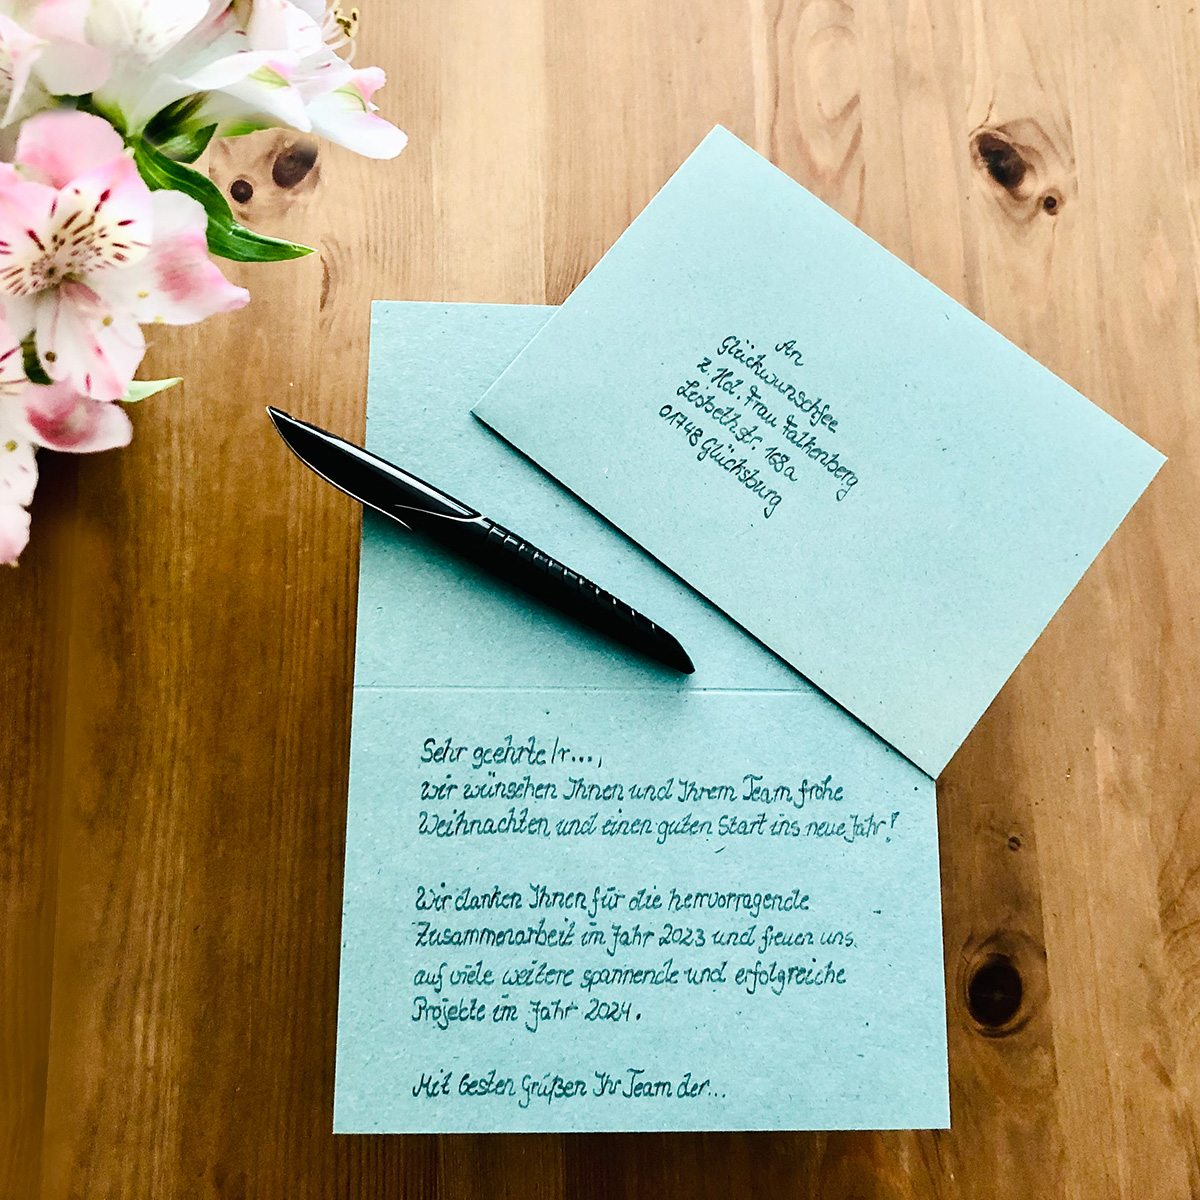 An
Glückwunschfee
z. Hd. Frau Falkenberg
Lisbethstr. 168a
01748 Glücksburg
Sehr geehrte/r...,
wir wünschen Ihnen und Ihrem Team frohe
Weihnachten und einen guten Start ins neue Jahr!
Wir danken Ihnen für die hervorragende
Zusammenarbeit im Jahr 2023 und freuen uns
auf viele weitere spannende und erfolgreiche
Projekte im Jahr 2024.
Mit besten Grüßen Ihr Team der...